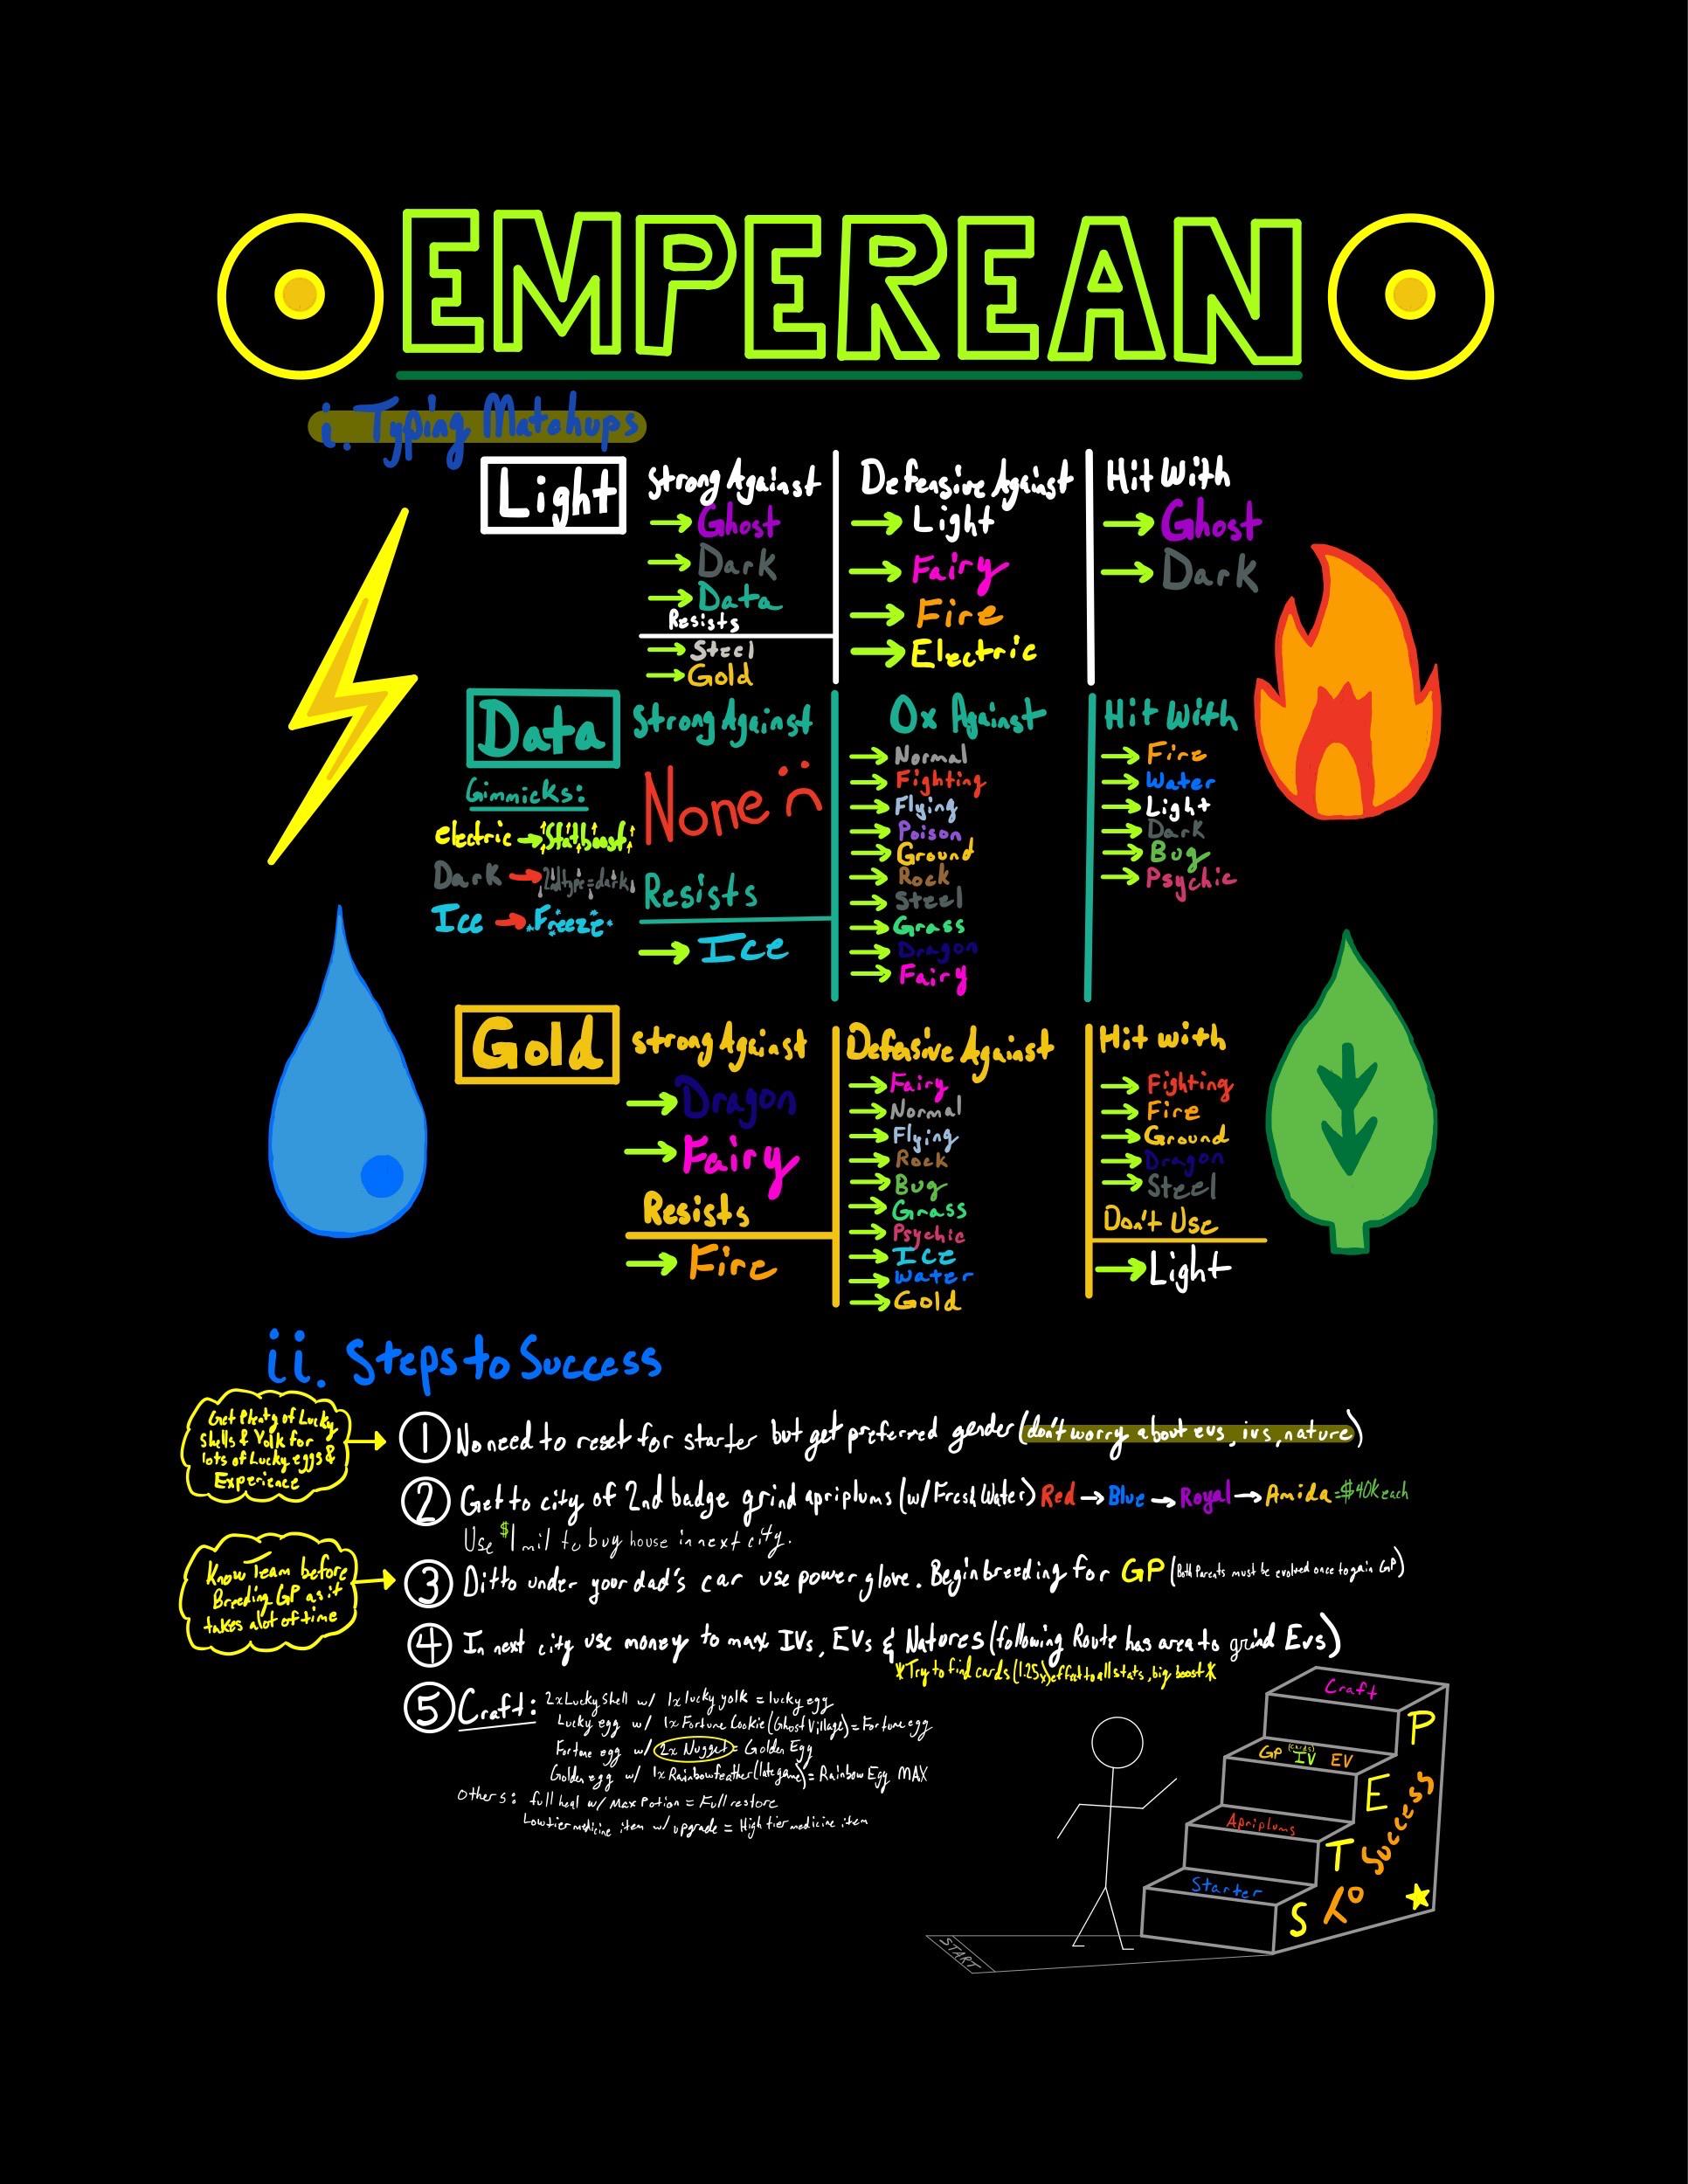 EMPEREAN
i. Typing Matchups
Light
Strong Against
→ Ghost
→ Dark
→ Data
Resists
→ Steel
→ Gold
Defensive Against
→ Light
→ Fairy
→ Fire
→ Electric
Hit With
→ Ghost
→ Dark
Data
Gimmicks:
electric → Stat boost
Dark → 2nd type = dark
Ice → Freeze
Strong Against
None :(
Resists
→ Ice
0x Against
→ Normal
→ Fighting
→ Flying
→ Poison
→ Ground
→ Rock
→ Steel
→ Grass
→ Dragon
→ Fairy
Hit With
→ Fire
→ Water
→ Light
→ Dark
→ Bug
→ Psychic
Gold
Strong Against
→ Dragon
→ Fairy
Resists
→ Fire
Defensive Against
→ Fairy
→ Normal
→ Flying
→ Rock
→ Bug
→ Grass
→ Psychic
→ Ice
→ Water
→ Gold
Hit with
→ Fighting
→ Fire
→ Ground
→ Dragon
→ Steel
Don't Use
→ Light
ii. Steps to Success
Get Plenty of Lucky
Shells & Yolk for
lots of Lucky eggs &
Experience
① No need to reset for starter but get preferred gender (don't worry about evs, ivs, nature)
② Get to city of 2nd badge grind apriplums (w/ Fresh Water) Red → Blue → Royal → Amida = $40k each
Use $1 mil to buy house in next city.
Know Team before
Breeding GP as it
takes a lot of time
③ Ditto under your dad's car use power glove. Begin breeding for GP (Both Parents must be evolved once to gain GP)
④ In next city use money to max IVs, EVs & Natures (following Route has area to grind Evs)
*Try to find cards (1.25x) effect to all stats, big boost*
⑤ Craft: 2x Lucky shell w/ 1x lucky yolk = lucky egg
Lucky egg w/ 1x Fortune Cookie (Ghost Village) = Fortune egg
Fortune egg w/ 2x Nugget = Golden Egg
Golden egg w/ 1x Rainbow feather (late game) = Rainbow Egg MAX
Others: full heal w/ Max Potion = Full restore
Low tier medicine item w/ upgrade = High tier medicine item
Craft
GP (Cards) IV EV
Apriplums
Starter
STEP
to Success
START